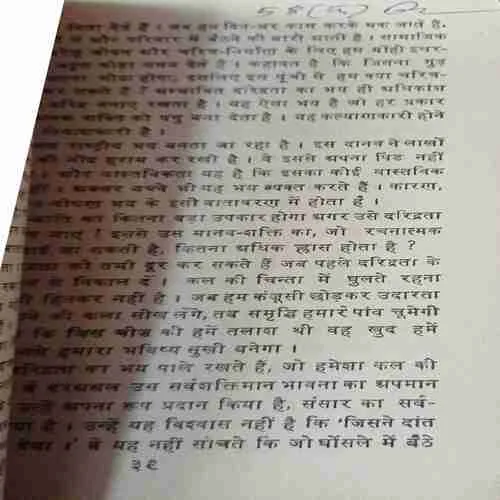 बिता देते हैं । जब हम दिन-भर काम करके थक जाते हैं,
और परिवार में बैठने की बारी आती है । सामाजिक
जीवन और चरित्र-निर्माण के लिए हम थोड़ी इधर-
थोड़ा समय देते हैं । कहावत है कि जितना गुड़
मीठा होगा, इसलिए इस पूंजी से हम क्या चरित्र-
सकते हैं ? सम्भावित दरिद्रता का भय ही अधिकांश
बनाए रखता है । यह ऐसा भय है जो हर प्रकार
शक्ति को पंगु बना देता है । वह कल्याणकारी होने
है ।
राष्ट्रीय भय बनता जा रहा है । इस दानव ने लाखों
की नींद हराम कर रखी है । वे इससे अपना पिंड नहीं
और वास्तविकता यह है कि इसका कोई वास्तविक
। अक्सर बच्चे भी यह भय व्यक्त करते हैं । कारण,
भय के इसी वातावरण में होता है ।
जाति का कितना बड़ा उपकार होगा अगर उसे दरिद्रता
जाए ! इससे उस मानव-शक्ति का, जो रचनात्मक
जा सकती है, कितना अधिक ह्रास होता है ?
को तभी दूर कर सकते हैं जब पहले दरिद्रता के
से निकाल दें । कल की चिन्ता में घुलते रहना
हितकर नहीं है । जब हम कंजूसी छोड़कर उदारता
की कला सीख लेंगे, तब समृद्धि हमारे पांव चूमेगी
कि जिस चीज़ की हमें तलाश थी वह खुद हमें
हमारा भविष्य सुखी बनेगा ।
दरिद्रता का भय पाले रखते हैं, जो हमेशा कल की
वे दरअसल उस सर्वशक्तिमान भावना का अपमान
उन्हें अपना रूप प्रदान किया है, संसार का सर्व-
है । उन्हें यह विश्वास नहीं है कि ‘जिसने दांत
देगा ।’ वे यह नहीं सोचते कि जो घोंसले में बैठे
३९